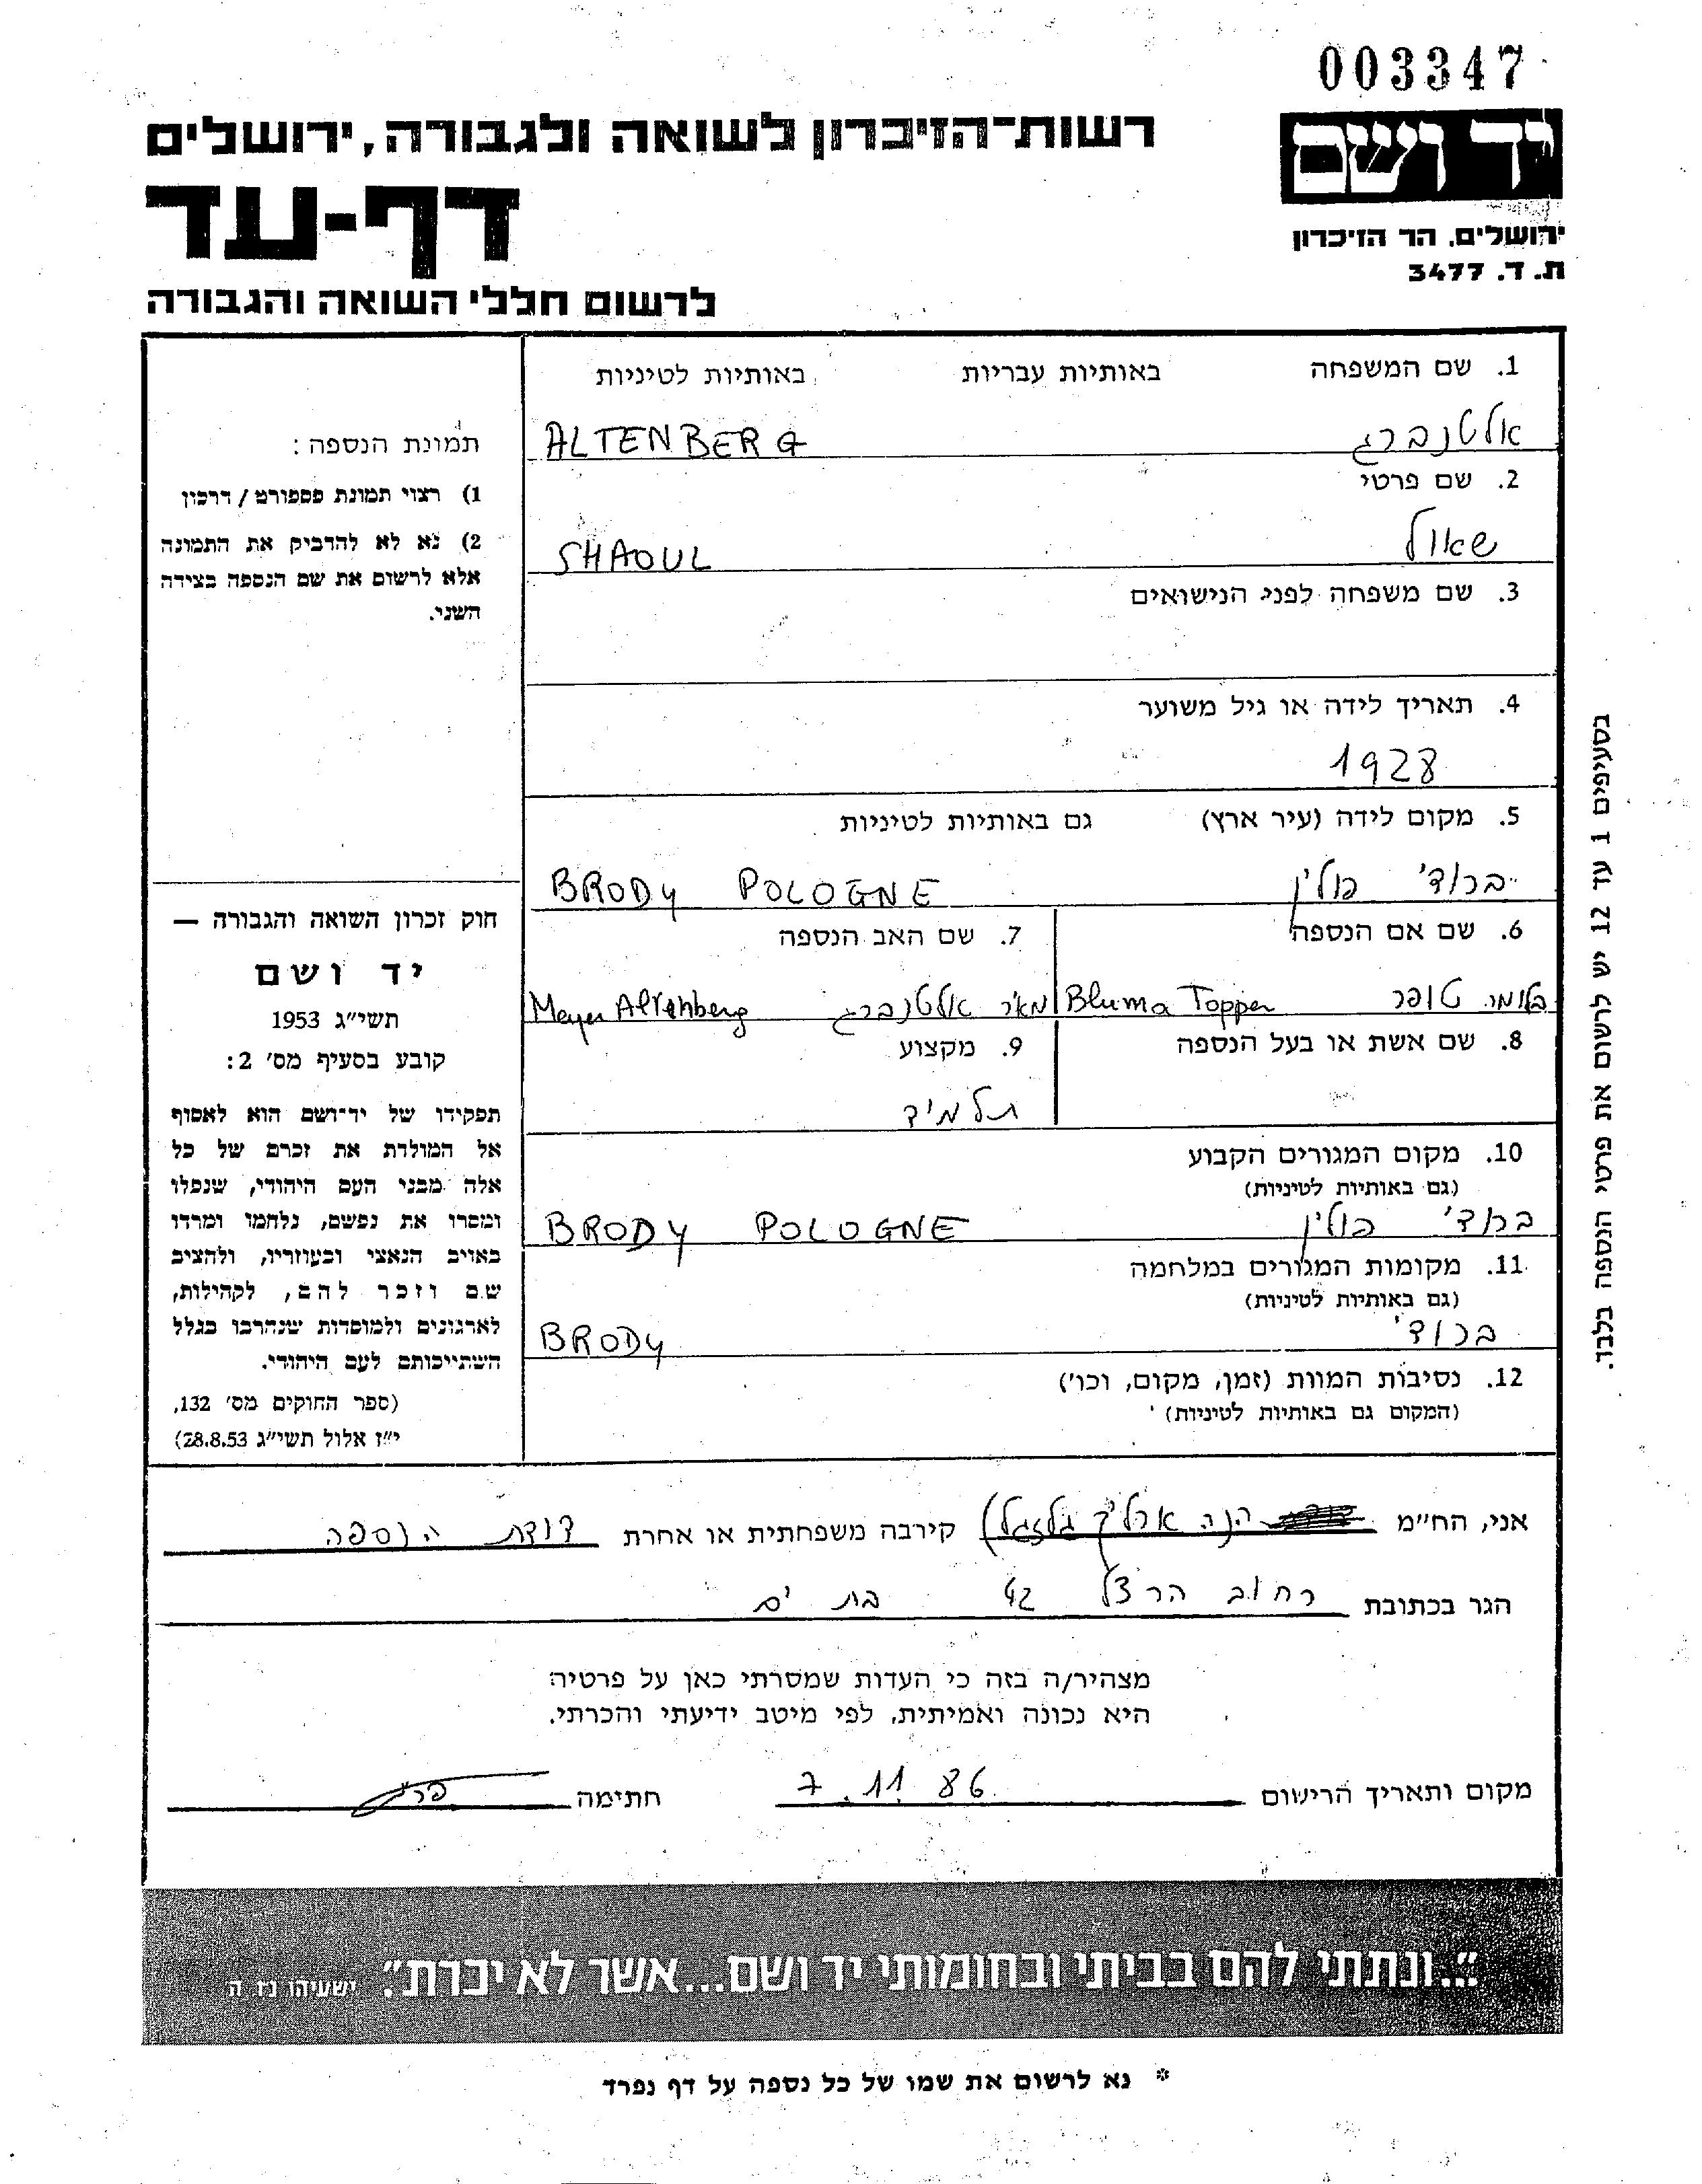 003347
יד ושם
רשות־הזיכרון לשואה ולגבורה, ירושלים
דף-עד
ירושלים, הר הזיכרון
ת. ד. 3477
לרשום חללי השואה והגבורה
1. שם המשפחה באותיות עבריות באותיות לטיניות
אלטנברג ALTENBERG
2. שם פרטי
שאול SHAOUL
3. שם משפחה לפני הנישואים
4. תאריך לידה או גיל משוער
1928
5. מקום לידה (עיר ארץ) גם באותיות לטיניות
ברודי פולין BRODY POLOGNE
6. שם אם הנספה 7. שם האב הנספה
בלומה טופר Bluma Topper מאיר אלטנברג Meyer Altenberg
8. שם אשת או בעל הנספה 9. מקצוע
תלמיד
10. מקום המגורים הקבוע
(גם באותיות לטיניות)
ברודי פולין BRODY POLOGNE
11. מקומות המגורים במלחמה
(גם באותיות לטיניות)
ברודי BRODY
12. נסיבות המוות (זמן, מקום, וכו')
(המקום גם באותיות לטיניות)
תמונת הנספה:
1) רצוי תמונת פספורט / דרכון
2) נא לא להדביק את התמונה
אלא לרשום את שם הנספה בצידה
השני.
חוק זכרון השואה והגבורה —
יד ושם
תשי"ג 1953
קובע בסעיף מס' 2:
תפקידו של יד־ושם הוא לאסוף
אל המולדת את זכרם של כל
אלה מבני העם היהודי, שנפלו
ומסרו את נפשם, נלחמו ומרדו
באויב הנאצי ובעוזריו, ולהציב
שם וזכר להם, לקהילות,
לארגונים ולמוסדות שנחרבו בגלל
השתייכותם לעם היהודי.
(ספר החוקים מס' 132,
י"ז אלול תשי"ג 28.8.53)
בסעיפים 1 עד 12 יש לרשום את פרטי הנספה בלבד.
אני, הח"מ קירבה משפחתית או אחרת דודת הנספה
הגר בכתובת רחוב הרצל 42 בת ים
מצהיר/ה בזה כי העדות שמסרתי כאן על פרטיה
היא נכונה ואמיתית, לפי מיטב ידיעתי והכרתי.
מקום ותאריך הרישום 7.11.86 חתימה
"...ונתתי להם בביתי ובחומותי יד ושם...אשר לא יכרת". ישעיהו נו ה
* נא לרשום את שמו של כל נספה על דף נפרד